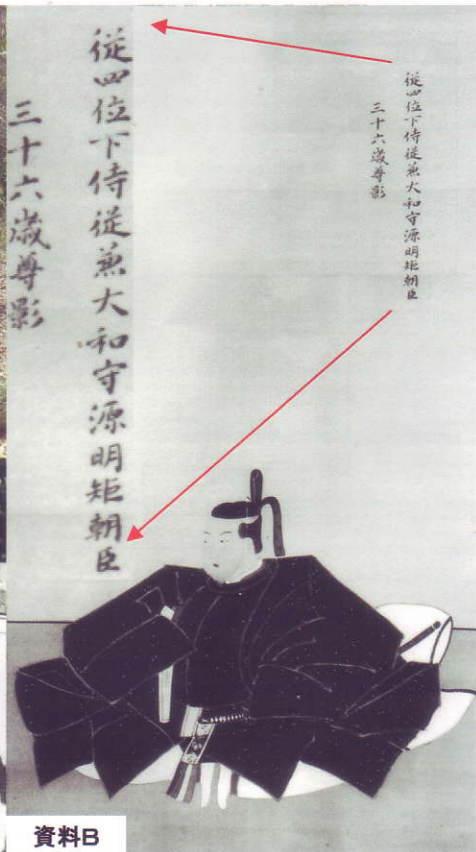 従四位下侍従兼大和守源明矩朝臣
三十六歳尊影
従四位下侍従兼大和守源明矩朝臣
三十六歳尊影
資料B